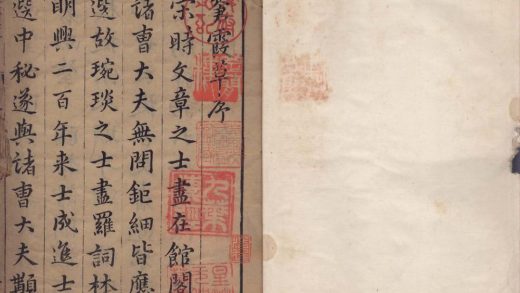 霞章序
宋時文章之士盡在館閣
諸曹大夫無問鉅細皆應
選故琬琰之士盡羅詞林
明興二百年来士成進士
選中秘遂與諸曹大夫顯